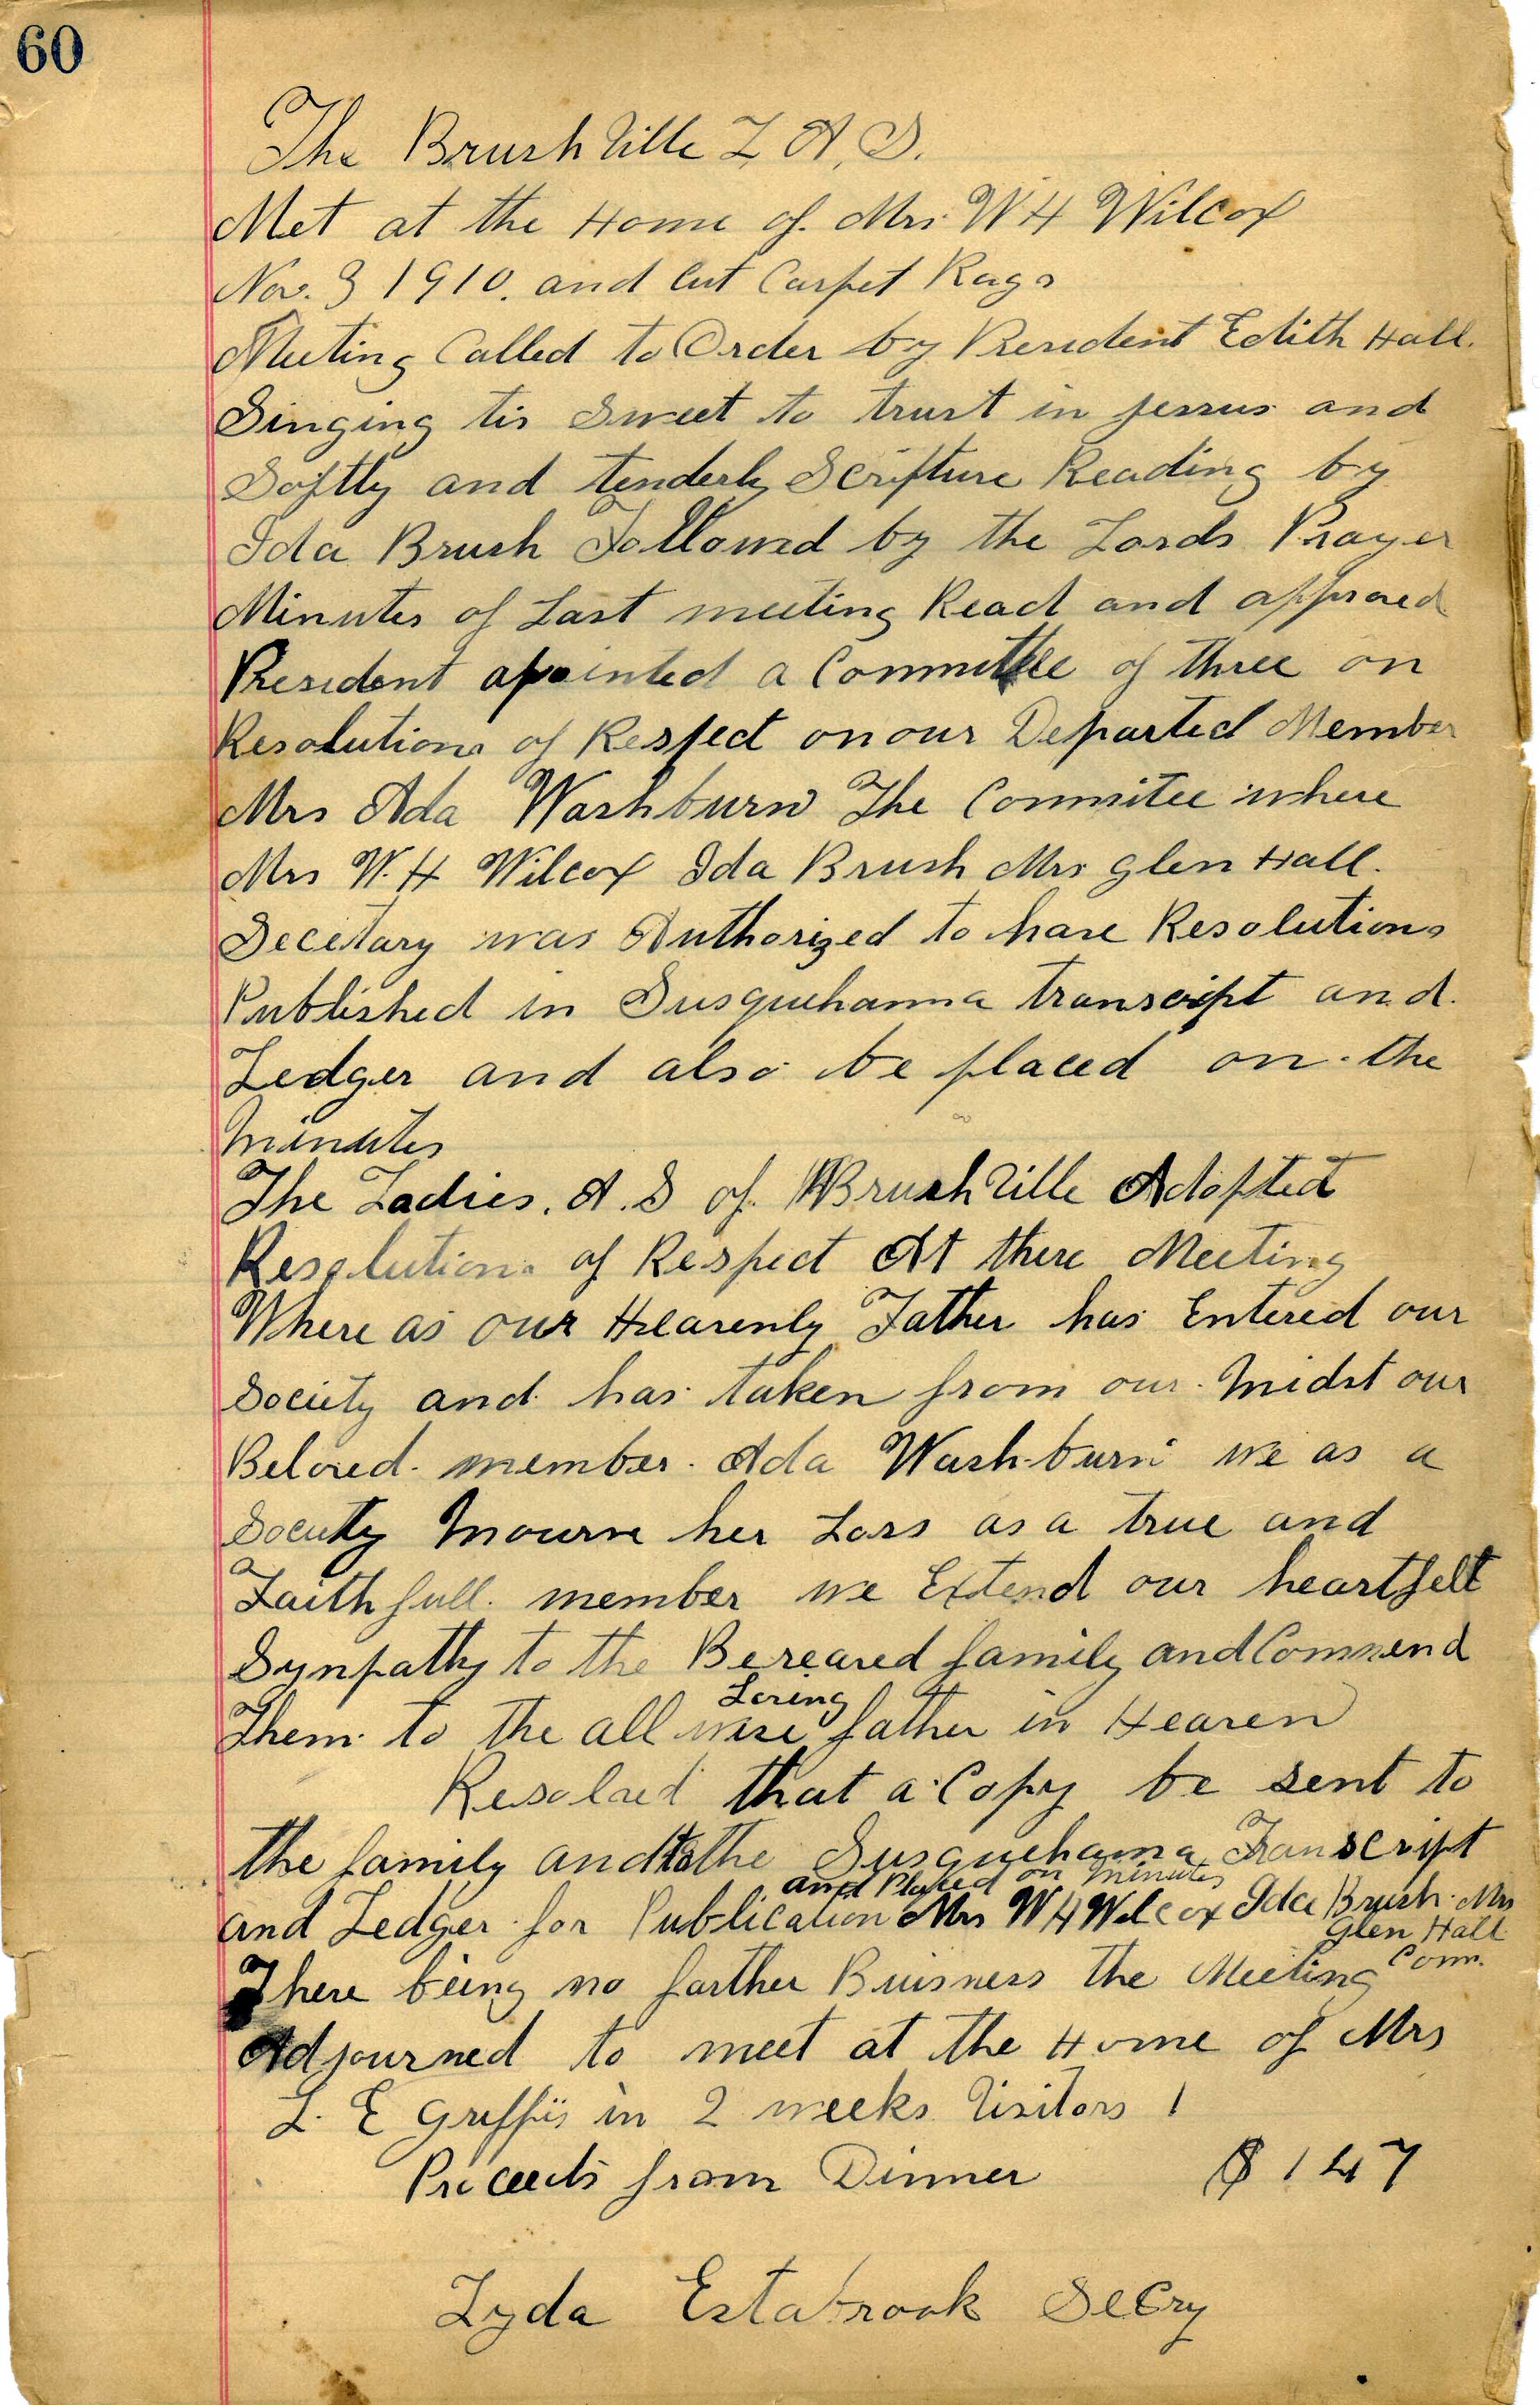 60
The Brushville L. A. S.
Met at the Home of Mrs W H Wilcox
Nov. 3 1910. and Cut Carpet Rags
Meeting Called to Order by President Edith Hall.
Singing tis Sweet to trust in jessus and
Softly and tenderly Scripture Reading by
Ida Brush Followed by the Lords Prayer
Minutes of Last meeting Read and approved
President apointed a Committee of three on
Resolutions of Respect on our Departed Member
Mrs Ada Washburn The Commitee where
Mrs W. H Wilcox Ida Brush Mrs Glen Hall.
Secetary was Authorized to have Resolutions
Published in Susquehanna transcript and.
Ledger and also be placed on the
minutes
The Ladies. A. S of. Brushville Adopted
Resolutions of Respect At there Meeting
Where as our Heavenly Father has Entered our
Society and has taken from our midst our
Beloved member Ada Washburn we as a
Society mourn her Loss as a true and
Faithfull member we Extend our heartfelt
Sympathy to the Bereaved family and Commend
Loving
Them to the all wise father in Heaven
Resolved that a Copy be sent to
the family and to the Susquehanna Transcript
and Placed on Minutes
and Ledger for Publication Mrs W H Wilcox Ida Brush Mrs
Glen Hall
Com.
There being no farther Buisness the Meeting
Adjourned to meet at the Home of Mrs
L. E Griffis in 2 weeks Visitors 1
Proceeds from Dinner $ 1 47
Lyda Estabrook Secry